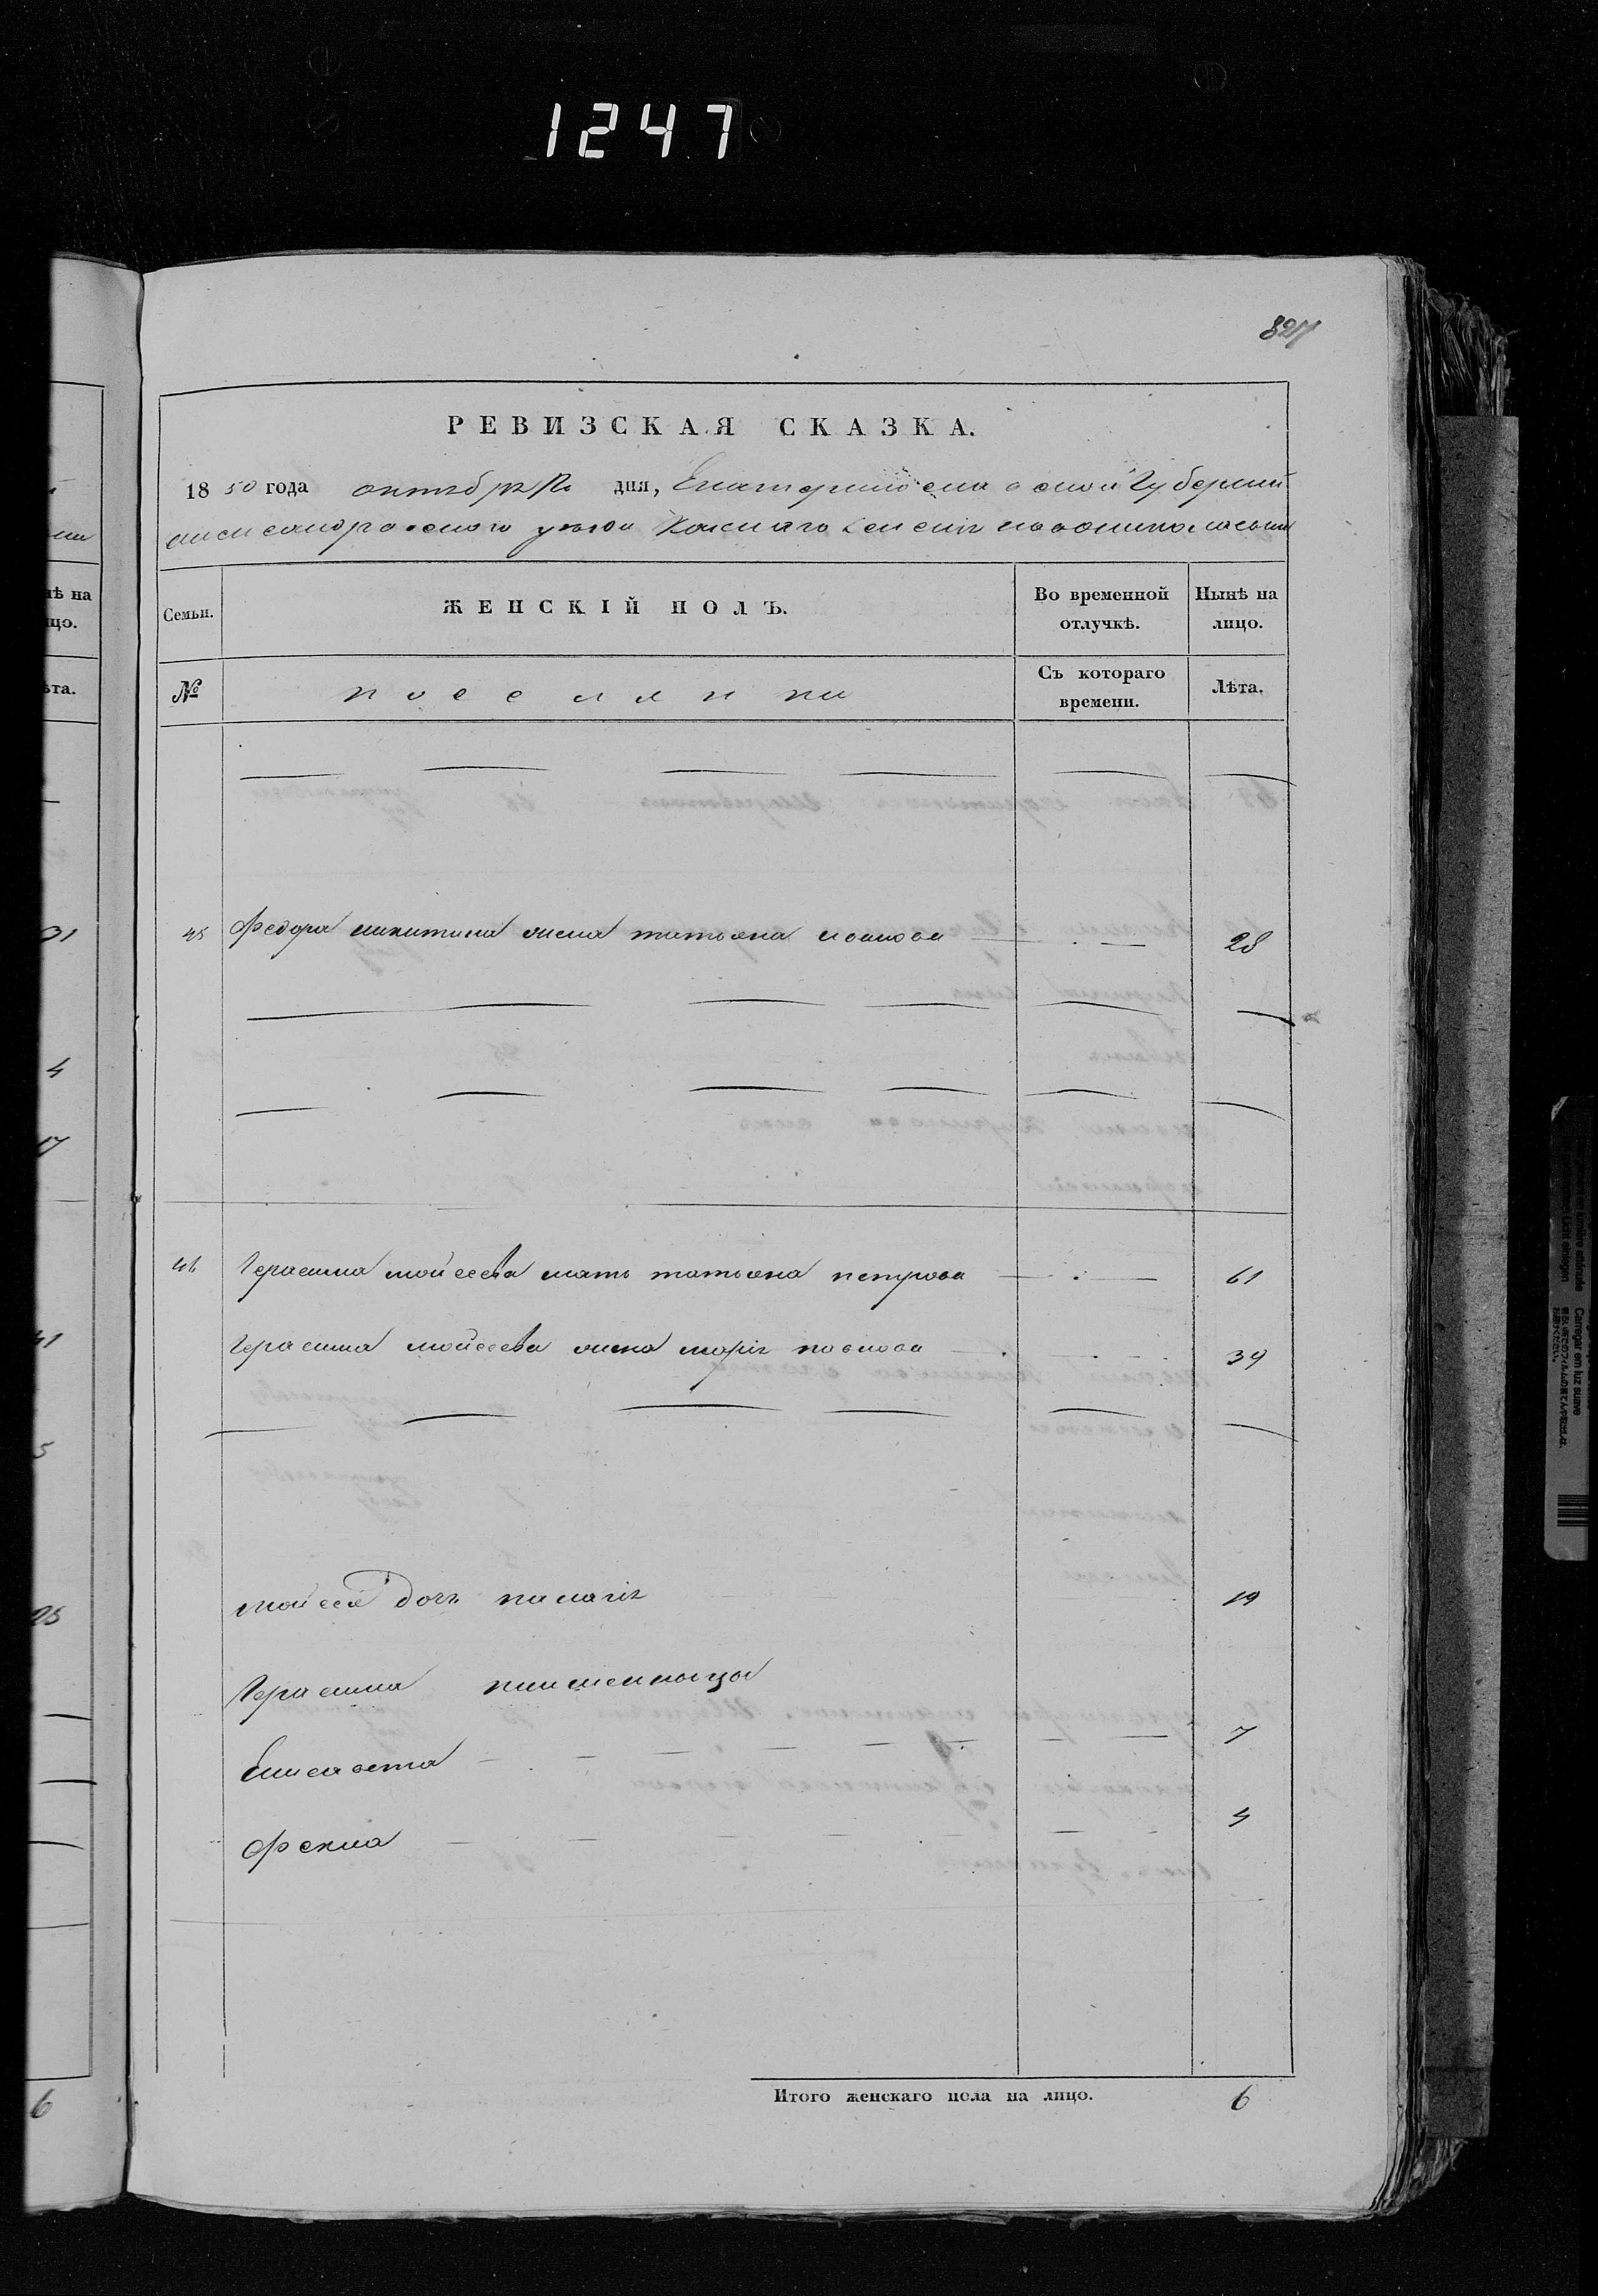 1247
827
РЕВИЗСКАЯ СКАЗКА.
1850 года октября дня, Екатеринославской Губернии
александровского уезда Казенного селения новониколаевки
Семьи. ЖЕНСКІЙ ПОЛЪ. Во временной отлучкѣ. Нынѣ на лицо.
№ поселянки Съ котораго времени. Лѣта.
45 Федора никитина жена татьяна иванова 28
46 Герасима мойсеева мать татьяна петрова 61
Герасима мойсеева жена марія павлова 39
мойсея дочь палагія 19
Герасима
Елисавета 7
Фекла 4
Итого женскаго пола на лицо. 6
нѣ на
цо.
ѣта.
31
4
17
41
5
25
6